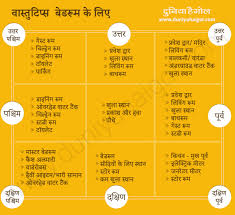 वास्तुटिप्स बेडरूम के लिए
दुनियाहैगोल
www.duniyahaigol.com
उत्तर
पश्चिम
गेस्ट रूम
चिल्ड्रेन रूम
ड्राइंग रूम
टॉयलेट
पार्किंग
उत्तर
प्रवेश द्वार
खुला स्थान
लिविंग रूम
बाथरूम
प्रवेश द्वार/ मंदिर
लिविंग रूम
बालकनी/ बरामदा
अंडरग्राउंड वाटर टैंक
खुला स्थान
उत्तर
पूर्व
पश्चिम
चिल्ड्रेन रूम
ओवरहेड वाटर टैंक
स्टडी रूम
टॉयलेट
खुला स्थान
प्रकाश और हवा
खुला स्थान
बाथरूम
लिविंग रूम
गेस्ट रूम
स्टडी रूम
पूर्व
मास्टर बेडरूम
कैश अलमारी
वार्डरोब
हैवी आइटम/भारी सामान
ओवरहेड वाटर टैंक
दक्षिण
पश्चिम
बेडरूम
सीढ़ियों के लिए स्थान
स्टोर रूम
कम खुला स्थान
दक्षिण
किचन - मुख पूर्व
इलेक्ट्रिक मीटर
जनरेटर रूम
स्टोर रूम
दक्षिण
पूर्व